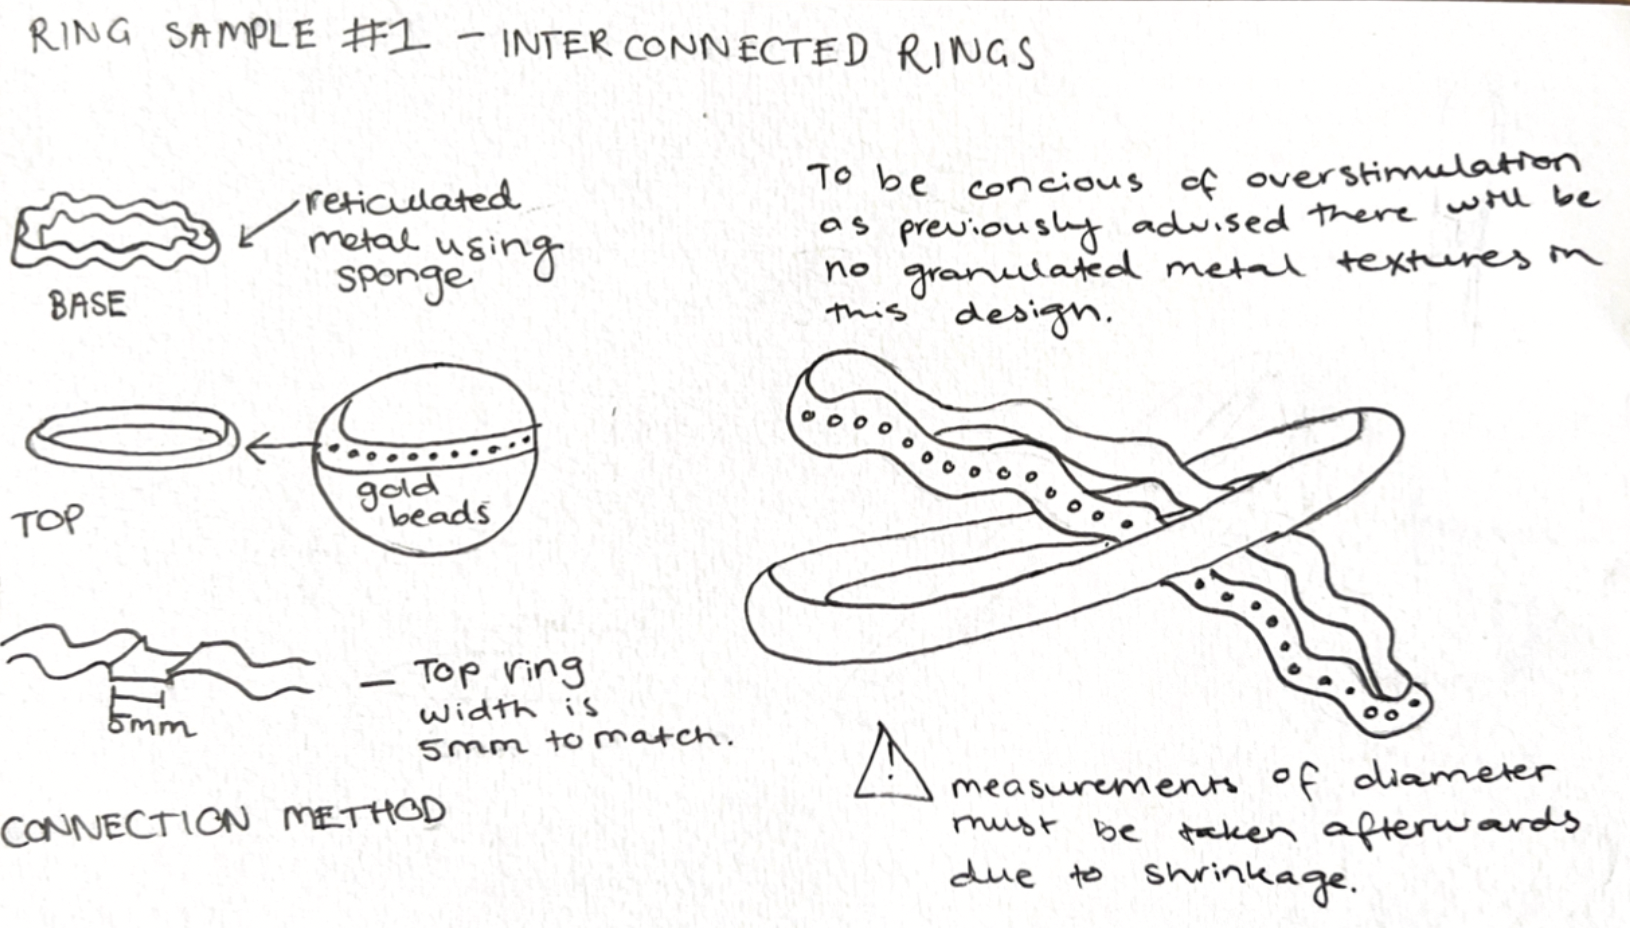 RING SAMPLE #1 - INTERCONNECTED RINGS
reticulated
metal using
sponge
BASE
To be concious of overstimulation
as previously advised there will be
no granulated metal textures in
this design.
TOP
gold
beads
5mm
- Top ring
width is
5mm to match.
CONNECTION METHOD
!
measurements of diameter
must be taken afterwards
due to shrinkage.